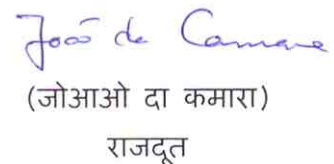 João de Camara
(जोआओ दा कमारा)
राजदूत